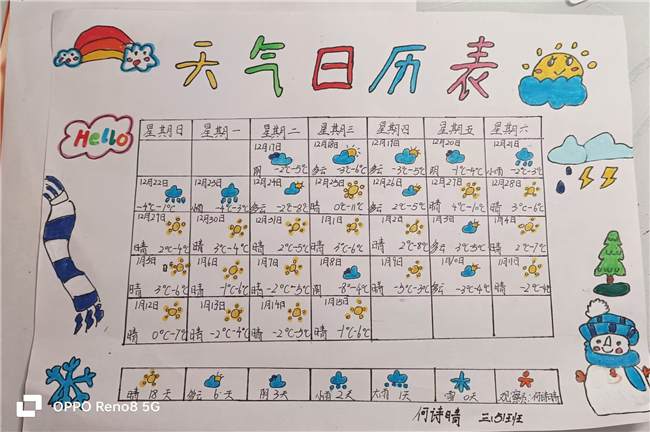 天气日历表
Hello
星期日 星期一 星期二 星期三 星期四 星期五 星期六
12月17日 12月18日 12月19日 12月20日 12月21日
阴 -2℃-5℃ 多云 -3℃-6℃ 多云 -3℃-5℃ 阴 -1℃-4℃ 小雨 -2℃-3℃
12月22日 12月23日 12月24日 12月25日 12月26日 12月27日 12月28日
-4℃-1℃ 小雨 -4℃-3℃ 多云 -2℃-3℃ 晴 0℃-11℃ 多云 2℃-5℃ 晴 4℃-10℃ 晴 3℃-6℃
12月29日 12月30日 12月31日 1月1日 1月2日 1月3日 1月4日
晴 2℃-4℃ 晴 3℃-4℃ 晴 2℃-5℃ 晴 3℃-6℃ 晴 2℃-8℃ 多云 3℃-5℃ 晴 2℃-7℃
1月5日 1月6日 1月7日 1月8日 1月9日 1月10日 1月11日
晴 3℃-6℃ 晴 1℃-6℃ 晴 -2℃-5℃ 阴 -8℃-4℃ 晴 -5℃-3℃ 多云 -3℃-4℃ 晴 -2℃-4℃
1月12日 1月13日 1月14日 1月15日
晴 0℃-7℃ 晴 -2℃-4℃ 晴 -2℃-5℃ 晴 -1℃-6℃
晴 18天 多云 6天 阴 3天 小雨 2天 大雨 1天 雪 0天 观察员:何诗晴
何诗晴 三.5班
OPPO Reno8 5G